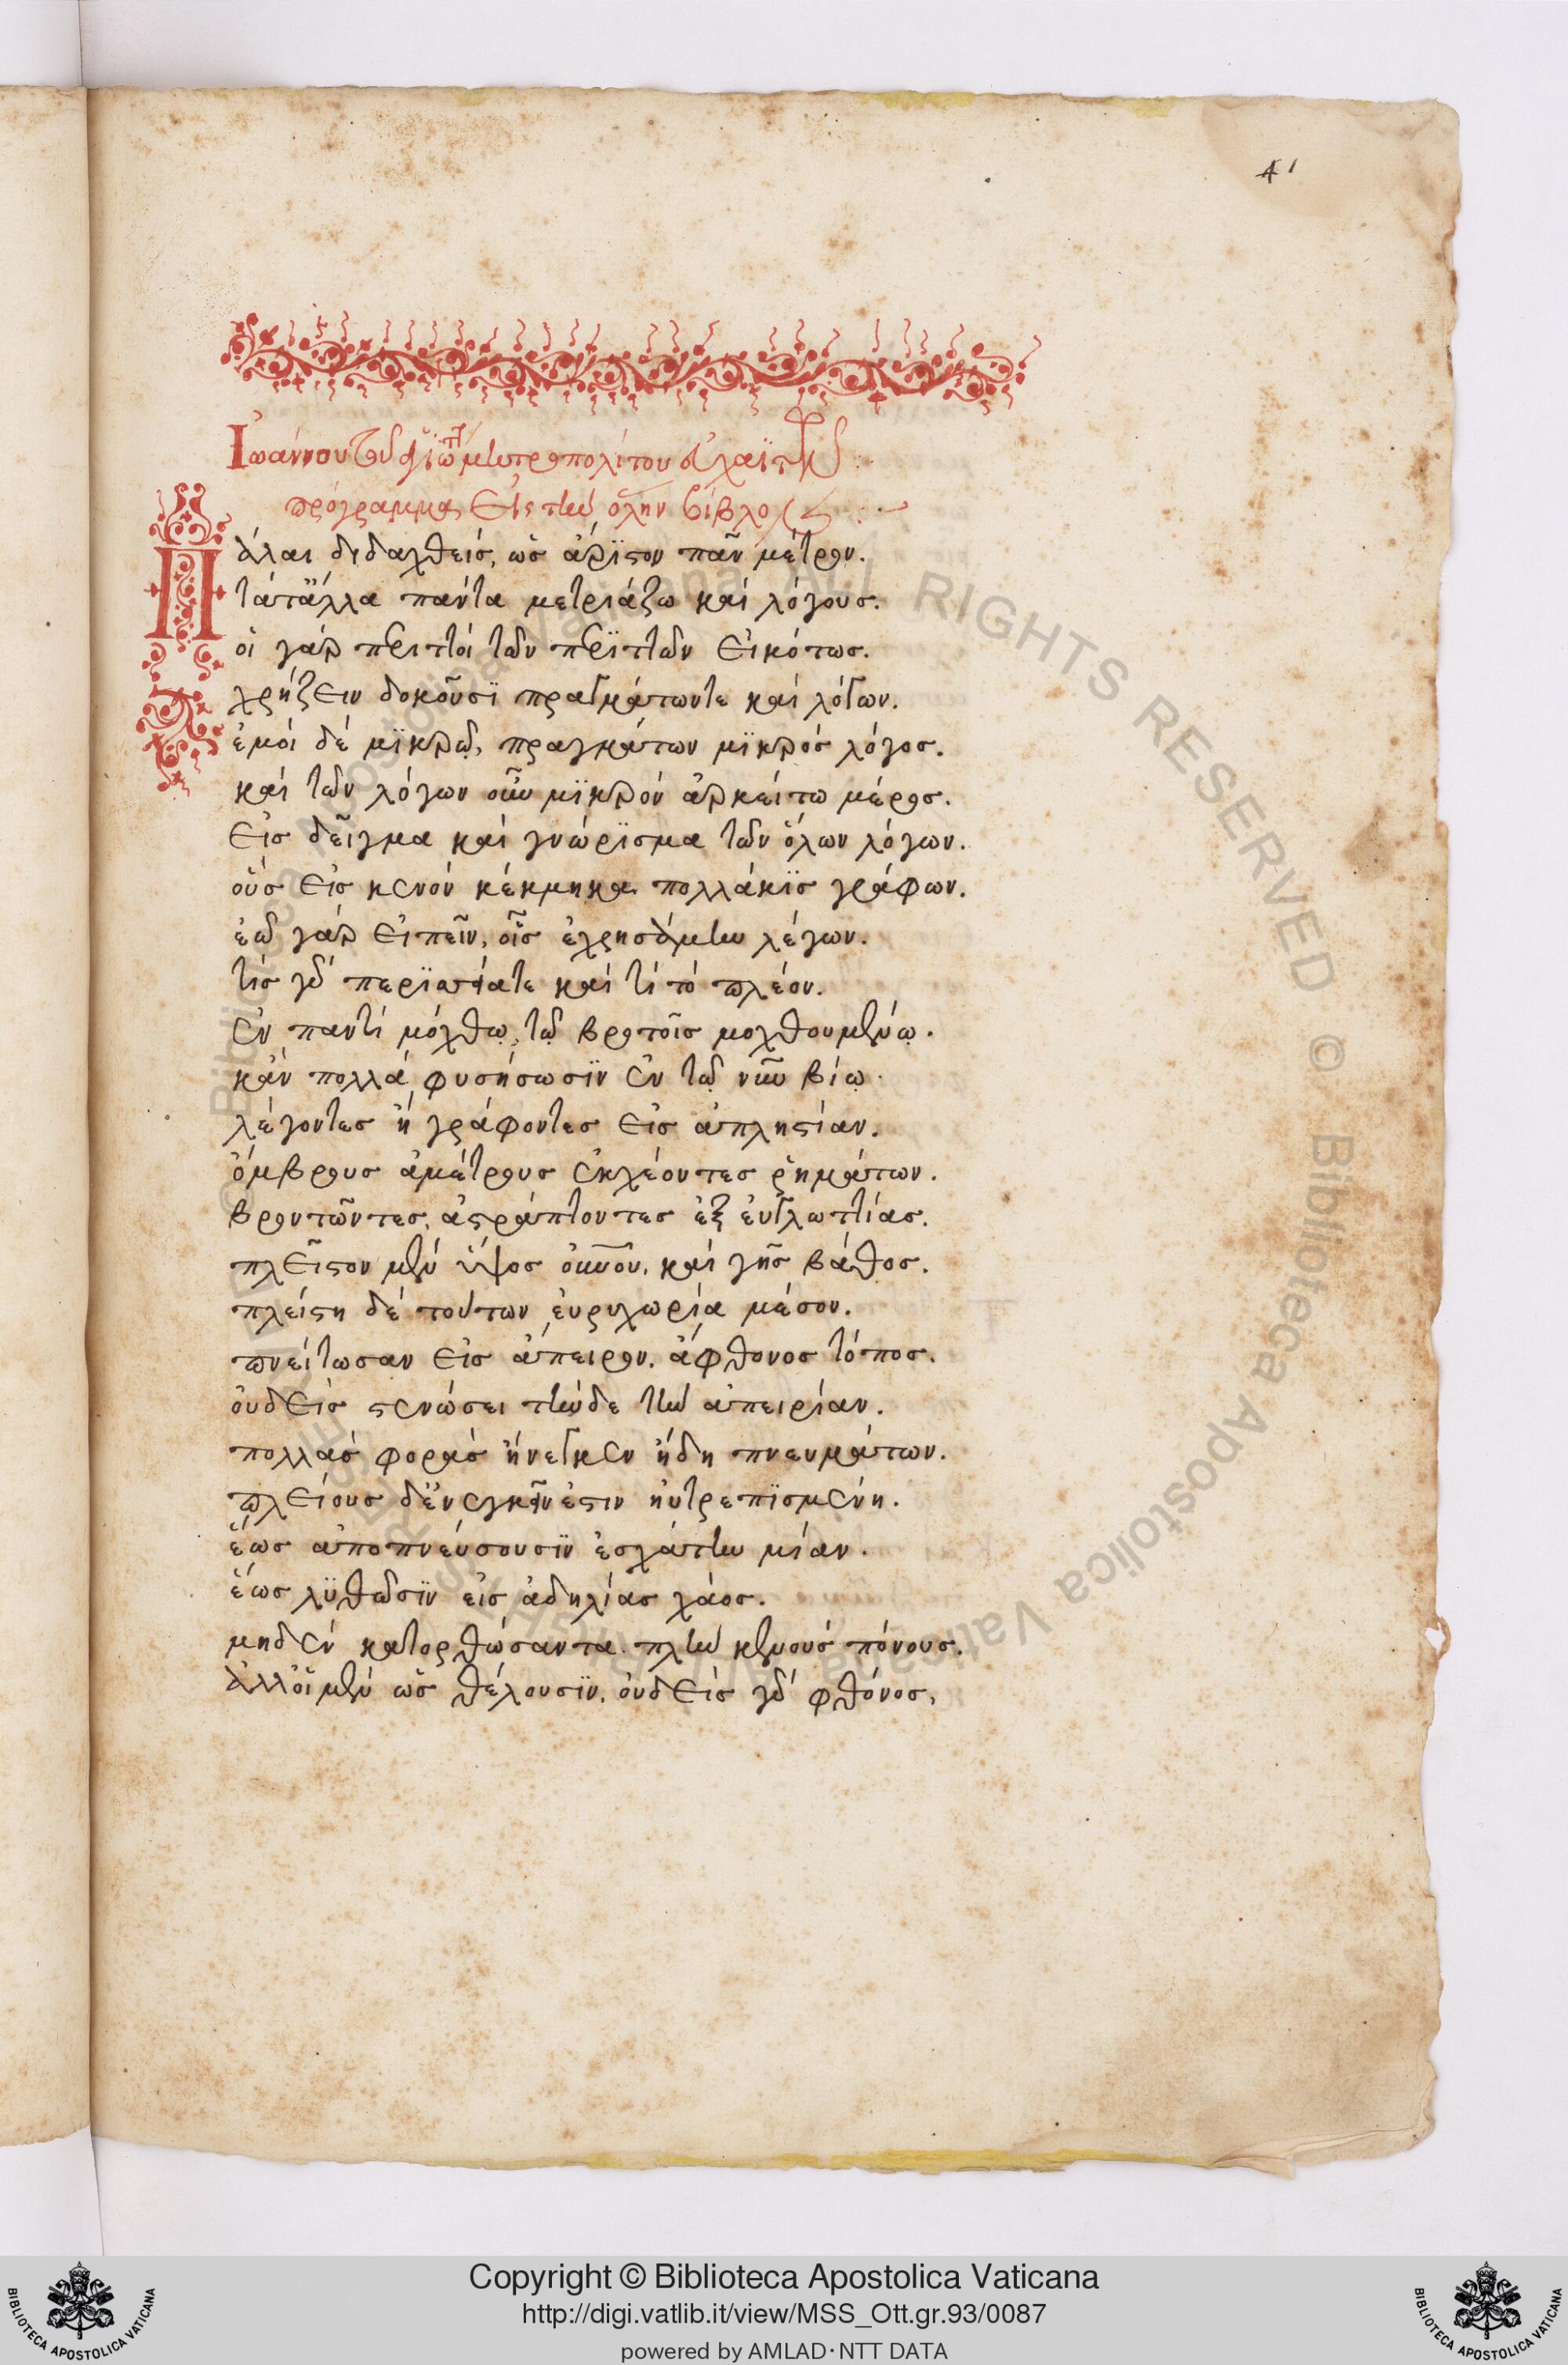 41
Ἰωάννου τοῦ μητροπολίτου
πρόγραμμα εἰς τὴν ὅλην βίβλον
Πάλαι διδαχθεὶς, ὡς ἄριστον πᾶν μέτρον.
τὰ τἄλλα πάντα μετριάζω καὶ λόγους.
οἱ γὰρ περιττοὶ τῶν περιττῶν εἰκότως.
χρήζειν δοκοῦσϊ πραγμάτωντε καὶ λόγων.
ἐμοὶ δὲ μϊκρῷ, πραγμάτων μϊκρὸς λόγος.
καὶ τῶν λόγων οὖν μϊκρὸν ἀρκείτω μέρος.
εἰς δεῖγμα καὶ γνώρϊσμα τῶν ὅλων λόγων.
οὓς εἰς κενὸν κέκμηκα πολλάκϊς γράφων.
ἐῶ γὰρ εἰπεῖν, οἷς ἐχρησάμην λέγων.
τίς γὰρ περϊττά τε καὶ τί τὸ πλέον.
ἐν παντὶ μόχθῳ, τῷ βροτοῖς μοχθουμένῳ.
κἂν πολλὰ φυσήσωσϊν ἐν τῷ νῦν βίῳ.
λέγοντες ἢ γράφοντες εἰς ἀπληστίαν.
ὄμβρους ἀμέτρους ἐκχέοντες ῥημάτων.
βροντῶντες, ἀστράπτοντες ἐξ εὐγλωττίας.
πλεῖστον μὲν ὕψος οὐρανοῦ, καὶ γῆς βάθος.
πλείστη δὲ τούτων εὐρυχωρία μέσον.
πνείτωσαν εἰς ἄπειρον. ἄφθονος τόπος.
οὐδεὶς στενώσει τήνδε τὴν ἀπειρίαν.
πολλὰς φορὰς ἤνεγκεν ἤδη πνευμάτων.
πλείους δ' ἐνεγκεῖν ἐστιν ηὐτρεπϊσμένη.
ἕως ἀποπνεύσουσϊν ἐσχάτην μίαν.
ἕως λϋθῶσϊν εἰς ἀδηλίας χάος.
μηδὲν κατορθώσαντα πλὴν κενοὺς πόνους.
ἀλλ' οἳ μὲν ὡς θέλουσϊν. οὐδεὶς γὰρ φθόνος,
Copyright © Biblioteca Apostolica Vaticana
http://digi.vatlib.it/view/MSS_Ott.gr.93/0087
powered by AMLAD·NTT DATA